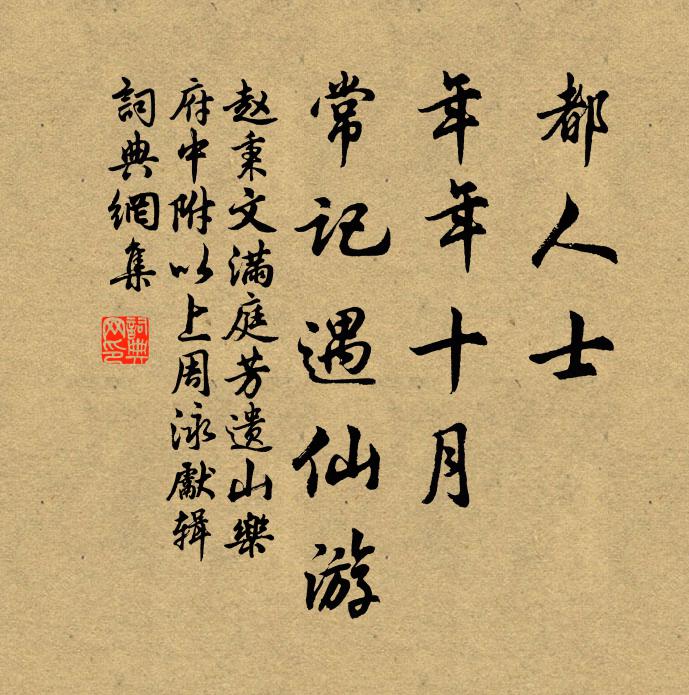 都人士
年年十月
常记遇仙游
赵秉文满庭芳遗山樂
府中附以上周泳獻辑
詞典網集
詞典网印